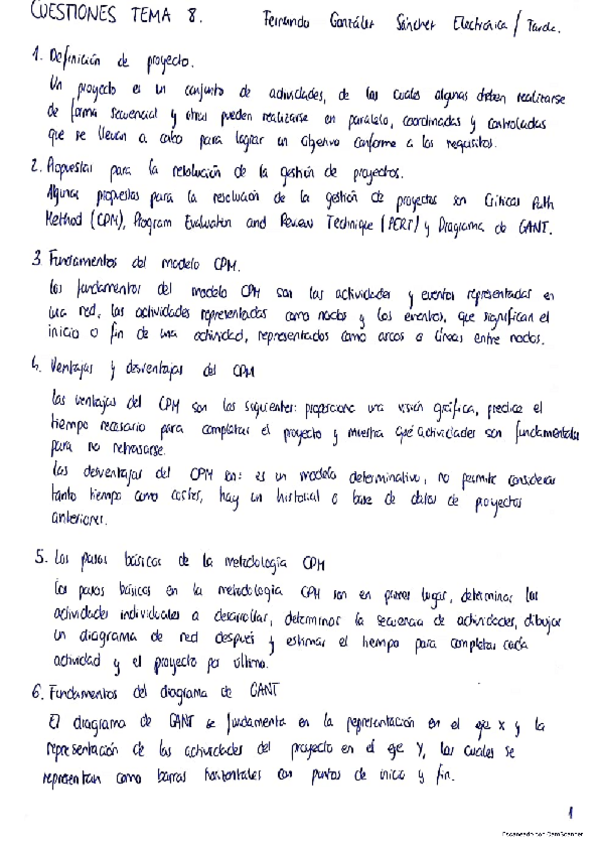 CUESTIONES TEMA 8. Fernando González Sánchez Electrónica / Tarde.
1. Definición de proyecto.
Un proyecto es un conjunto de actividades, de las cuales algunas deben realizarse
de forma secuencial y otras pueden realizarse en paralelo, coordinadas y controladas
que se llevan a cabo para lograr un objetivo conforme a los requisitos.
2. Propuestas para la resolución de la gestión de proyectos.
Algunas propuestas para la resolución de la gestión de proyectos son Criticas Path
Method (CPM), Program Evaluation and Review Technique (PERT) y Diagrama de GANT.
3 Fundamentos del modelo CPM.
Los fundamentos del modelo CPM son las actividades y eventos representadas en
una red, las actividades representadas como nodos y los eventos, que significan el
inicio o fin de una actividad, representados como arcos o líneas entre nodos.
4. Ventajas y desventajas del CPM
Las ventajas del CPM son las siguientes: proporciona una visión gráfica, predice el
tiempo necesario para completar el proyecto y muestra qué actividades son fundamentales
para no retrasarse.
Las desventajas del CPM son: es un modelo determinativo, no permite considerar
tanto tiempo como costes, hay un historial o base de datos de proyectos
anteriores.
5. Los pasos básicos de la metodología CPM
Los pasos básicos en la metodología CPM son en primer lugar, determinar las
actividades individuales a desarrollar, determinar la secuencia de actividades, dibujar
un diagrama de red después y estimar el tiempo para completar cada
actividad y el proyecto por último.
6. Fundamentos del diagrama de GANT
El diagrama de GANT se fundamenta en la representación en el eje x y la
representación de las actividades del proyecto en el eje Y, las cuales se
representan como barras horizontales con puntos de inicio y fin.
1
Escaneado con CamScanner